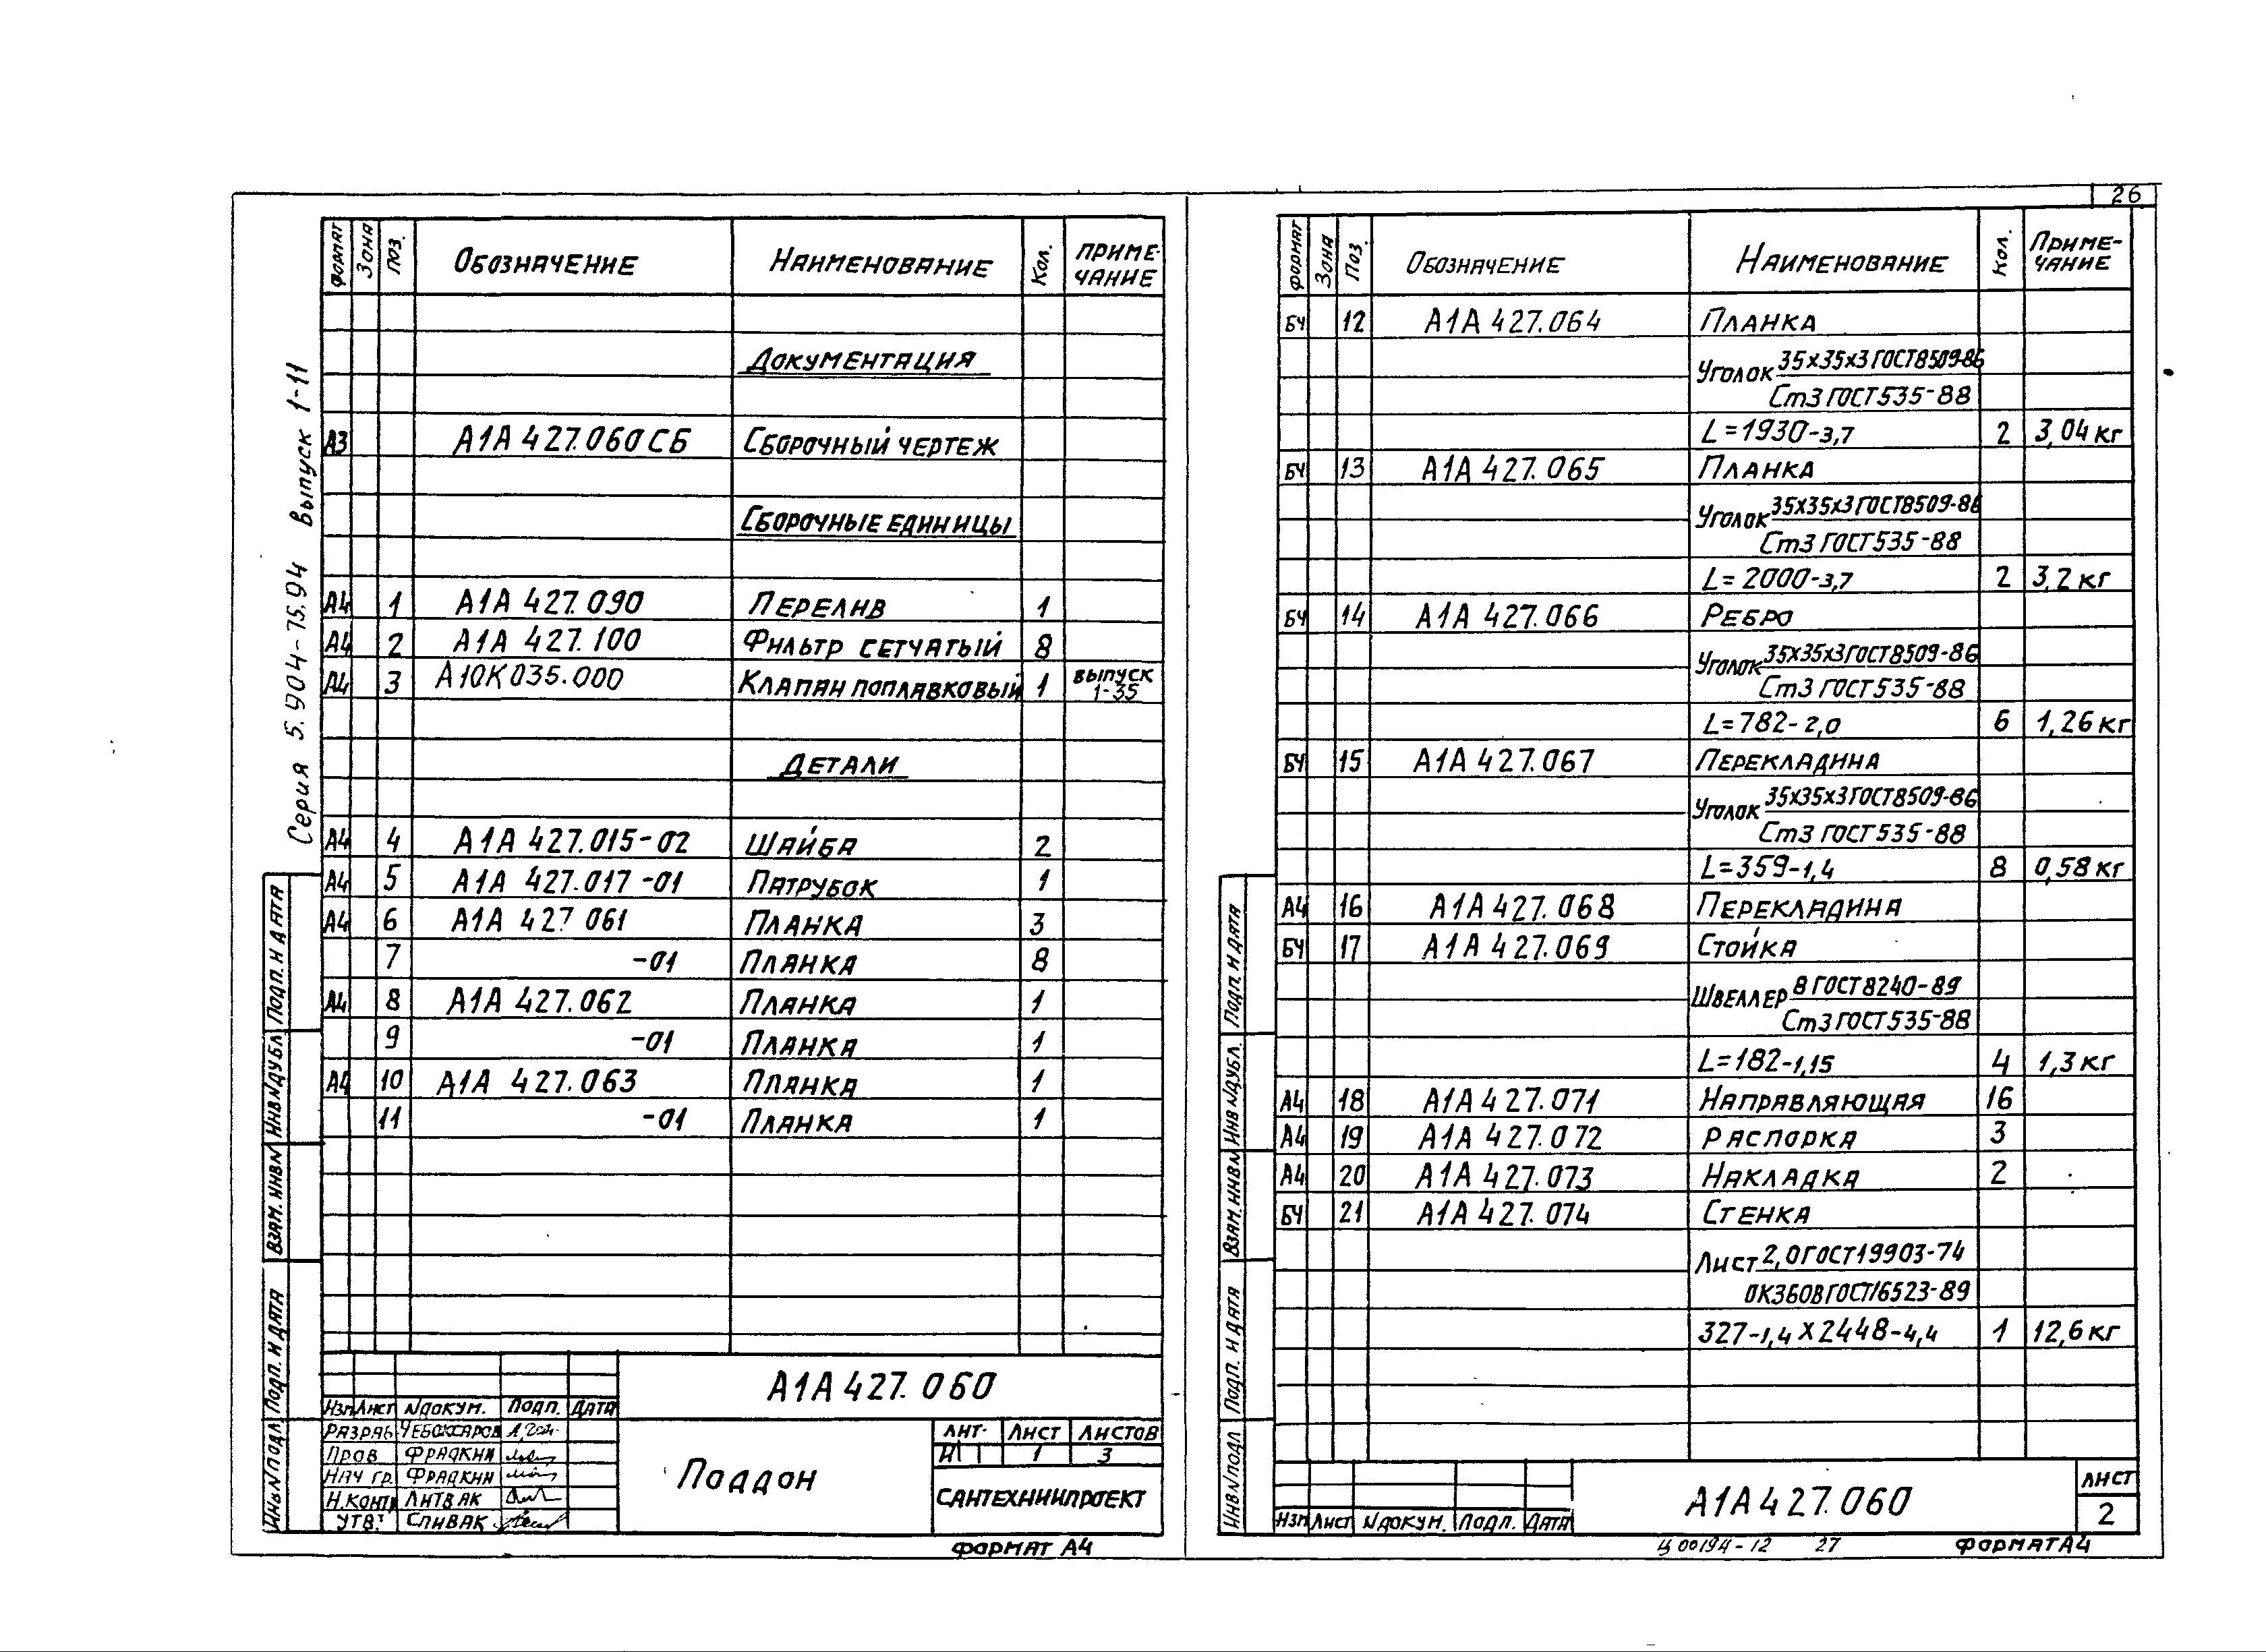 26
Серия 5.904-75.94 Выпуск 1-11
Формат Зона Поз. Обозначение Наименование Кол. Приме-
чание
Документация
А3 А1А 427.060 СБ Сборочный чертеж
Сборочные единицы
А4 1 А1А 427.090 Перелив 1
А4 2 А1А 427.100 Фильтр сетчатый 8
А4 3 А10К035.000 Клапан поплавковый 1 выпуск
1-35
Детали
А4 4 А1А 427.015-02 Шайба 2
А4 5 А1А 427.017-01 Патрубок 1
А4 6 А1А 427 061 Планка 3
7 -01 Планка 8
А4 8 А1А 427.062 Планка 1
9 -01 Планка 1
А4 10 А1А 427.063 Планка 1
11 -01 Планка 1
Подп. и дата
Инв N дубл
Взам. инв N
Подп. и дата
Инв N подл
А1А 427.060
Изм Лист N докум. Подп. Дата
Разраб Чебоксаров
Пров Фрадкин
Нач гр. Фрадкин
Н.контр Литвак
Утв. Спивак
Поддон
Лит. Лист Листов
И 1 3
САНТЕХНИИПРОЕКТ
Формат А4
Формат Зона Поз. Обозначение Наименование Кол. Приме-
чание
БЧ 12 А1А 427.064 Планка
Уголок 35х35х3 ГОСТ8509-86
Ст3 ГОСТ535-88
L=1930-3,7 2 3,04 кг
БЧ 13 А1А 427.065 Планка
Уголок 35х35х3 ГОСТ8509-86
Ст3 ГОСТ535-88
L=2000-3,7 2 3,2 кг
БЧ 14 А1А 427.066 Ребро
Уголок 35х35х3 ГОСТ8509-86
Ст3 ГОСТ535-88
L=782-2,0 6 1,26 кг
БЧ 15 А1А 427.067 Перекладина
Уголок 35х35х3 ГОСТ8509-86
Ст3 ГОСТ535-88
L=359-1,4 8 0,58 кг
А4 16 А1А 427.068 Перекладина
БЧ 17 А1А 427.069 Стойка
Швеллер 8 ГОСТ8240-89
Ст3 ГОСТ535-88
L=182-1,15 4 1,3 кг
А4 18 А1А 427.071 Направляющая 16
А4 19 А1А 427.072 Распорка 3
А4 20 А1А 427.073 Накладка 2
БЧ 21 А1А 427.074 Стенка
Лист 2,0 ГОСТ19903-74
ОК360В ГОСТ16523-89
327-1,4 х 2448-4,4 1 12,6 кг
Подп. и дата
Инв N дубл.
Взам. инв N
Подп. и дата
Инв N подл
Изм Лист N докум. Подп. Дата
А1А 427.060
Лист
2
Ц 00194-12 27
Формат А4